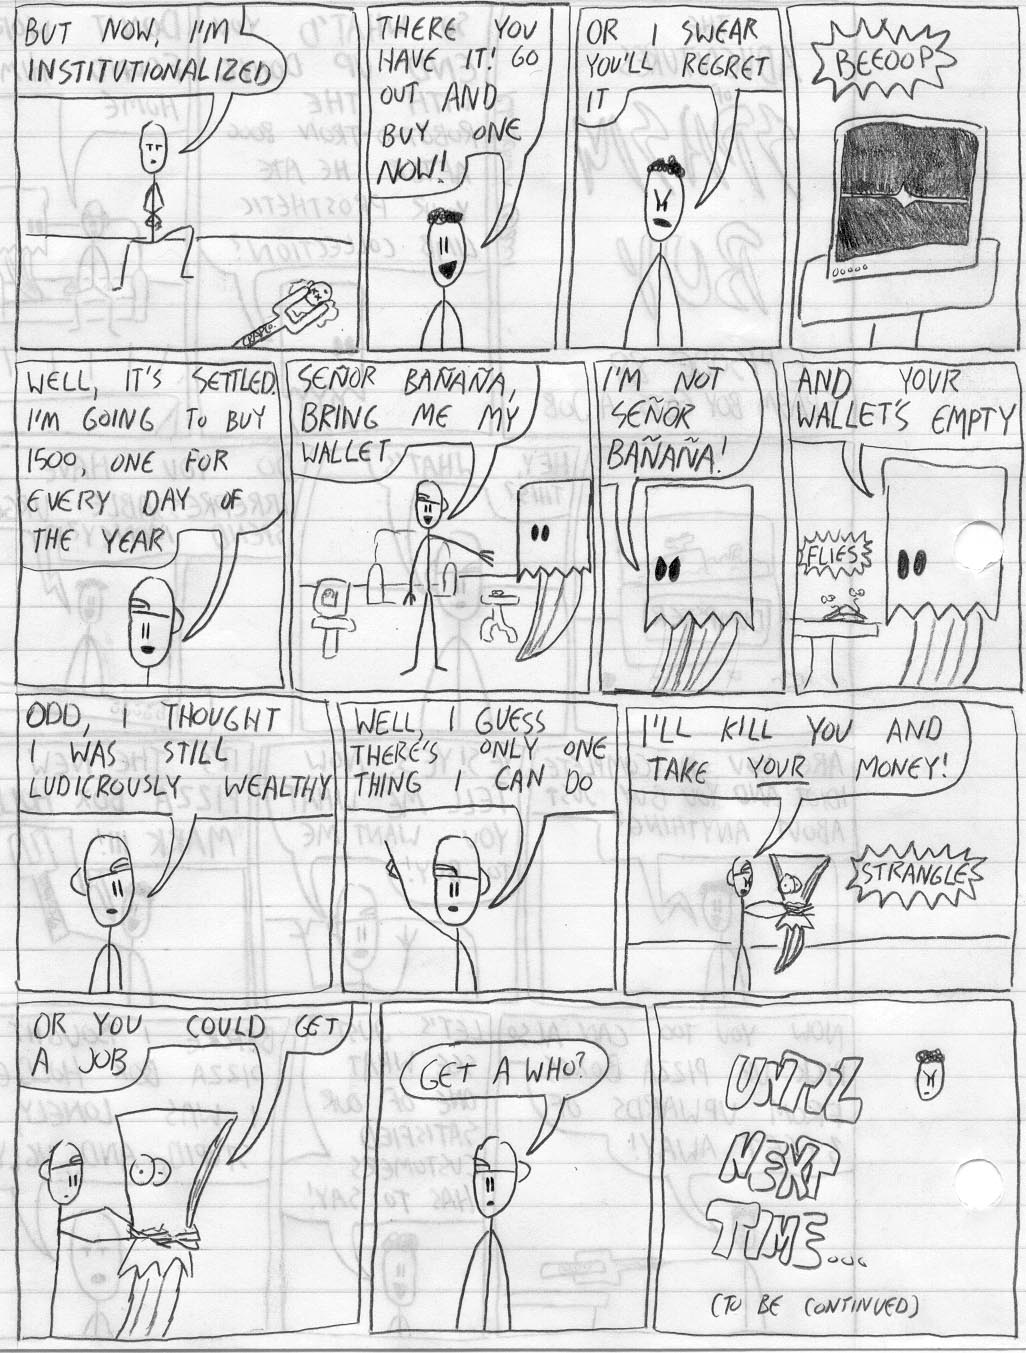 BUT NOW, I'M
INSTITUTIONALIZED
THERE YOU
HAVE IT! GO
OUT AND
BUY ONE
NOW!
OR I SWEAR
YOU'LL REGRET
IT
BEEOOP
WELL, IT'S SETTLED.
I'M GOING TO BUY
1500, ONE FOR
EVERY DAY OF
THE YEAR
SEÑOR BAÑAÑA,
BRING ME MY
WALLET
I'M NOT
SEÑOR
BAÑAÑA!
AND YOUR
WALLET'S EMPTY
FLIES
ODD, I THOUGHT
I WAS STILL
LUDICROUSLY WEALTHY
WELL, I GUESS
THERE'S ONLY ONE
THING I CAN DO
I'LL KILL YOU AND
TAKE YOUR MONEY!
STRANGLE
OR YOU COULD GET
A JOB
GET A WHO?
UNTIL
NEXT
TIME...
(TO BE CONTINUED)